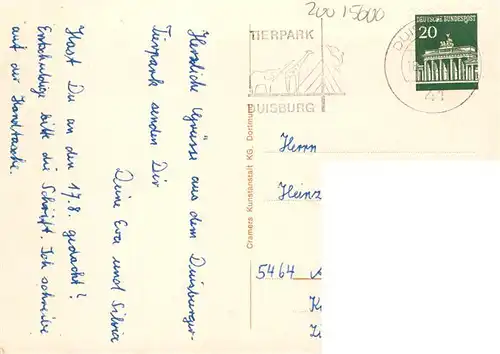 Herzliche Grüsse aus dem Duisburger-
Tierpark senden Dir
Deine Eva und Silvia
Hast Du an den 17.8. gedacht?
Entschuldige bitte die Schrift. Ich schreibe
auf der Handtasche.
Cramers Kunstanstalt KG, Dortmund
200 15600
TIERPARK
DUISBURG
DU
41
DEUTSCHE BUNDESPOST
20
Herrn
Heinz
5464